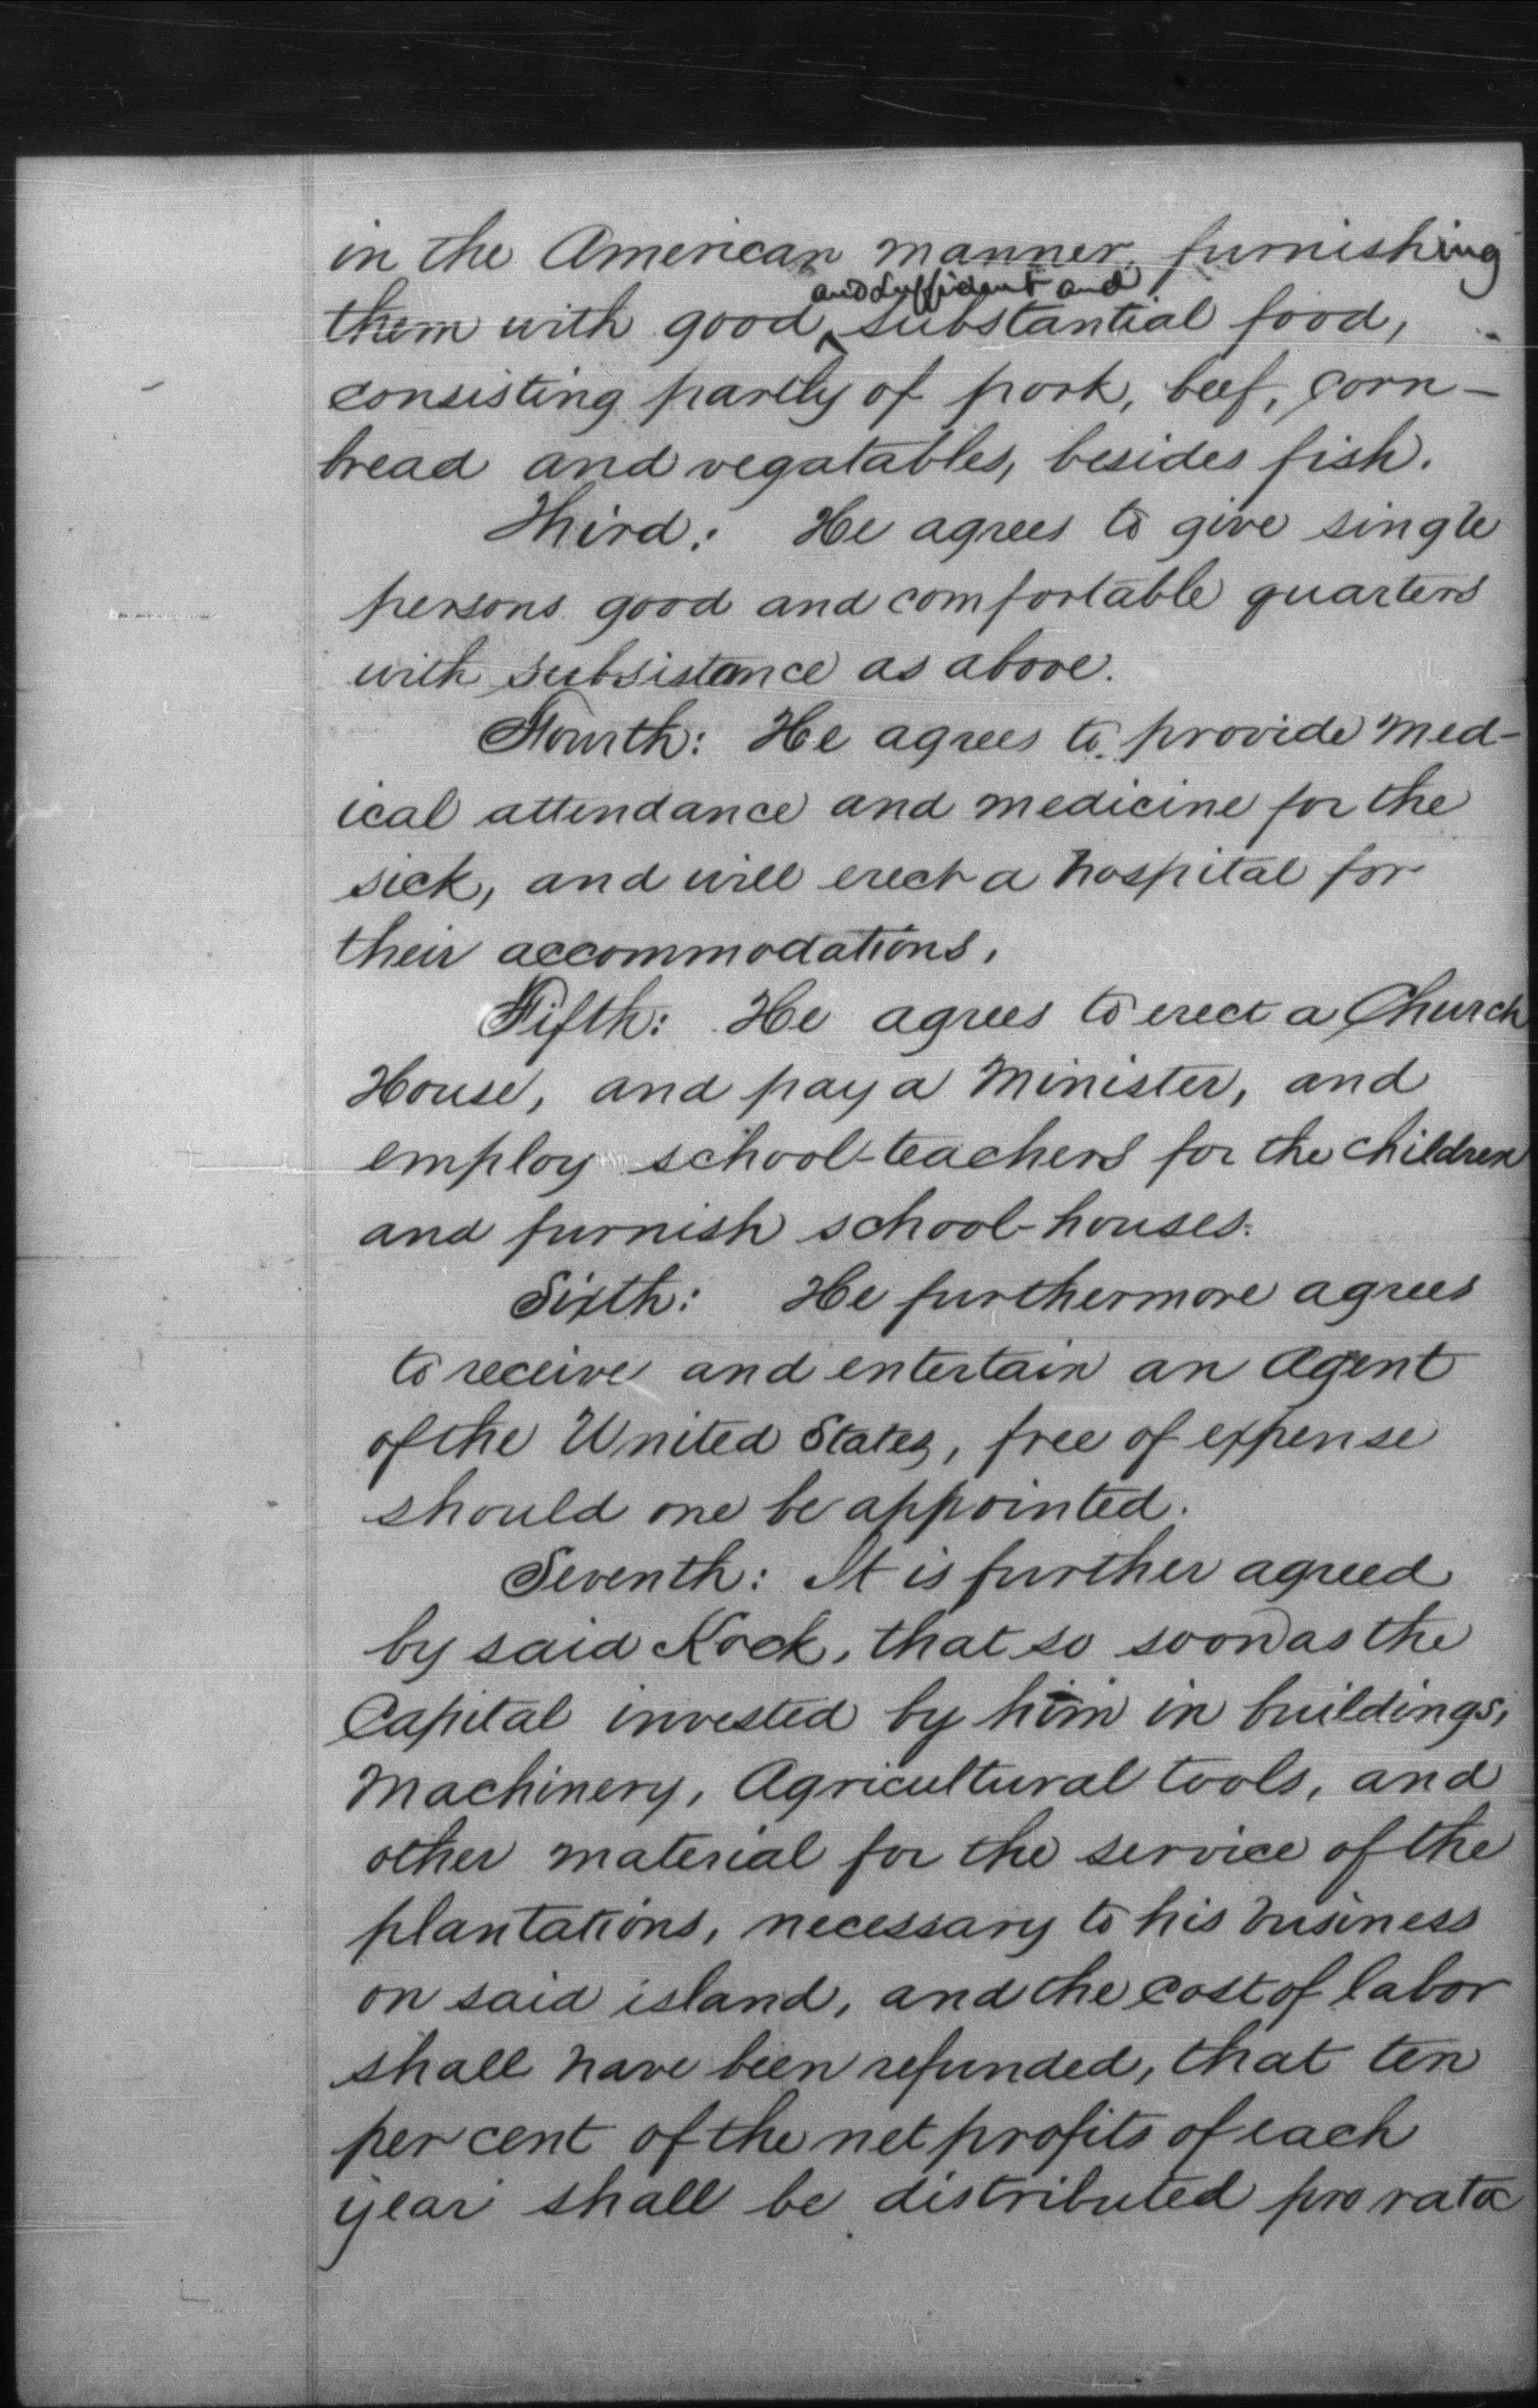 in the American manner, furnishing
and sufficient and
them with good, substantial food,
consisting partly of pork, beef, corn-
bread and vegatables, besides fish.
Third: He agrees to give single
persons good and comfortable quarters
with subsistance as above.
Fourth: He agrees to provide med-
ical attendance and medicine for the
sick, and will erect a hospital for
their accommodations.
Fifth: He agrees to erect a Church
House, and pay a Minister, and
employ school-teachers for the children
and furnish school-houses.
Sixth: He furthermore agrees
to receive and entertain an Agent
of the United States, free of expense
should one be appointed.
Seventh: It is further agreed
by said Kock, that so soon as the
Capital invested by him in buildings,
Machinery, Agricultural tools, and
other material for the service of the
plantations, necessary to his business
on said island, and the cost of labor
shall have been refunded, that ten
per cent of the net profits of each
year shall be distributed pro rata